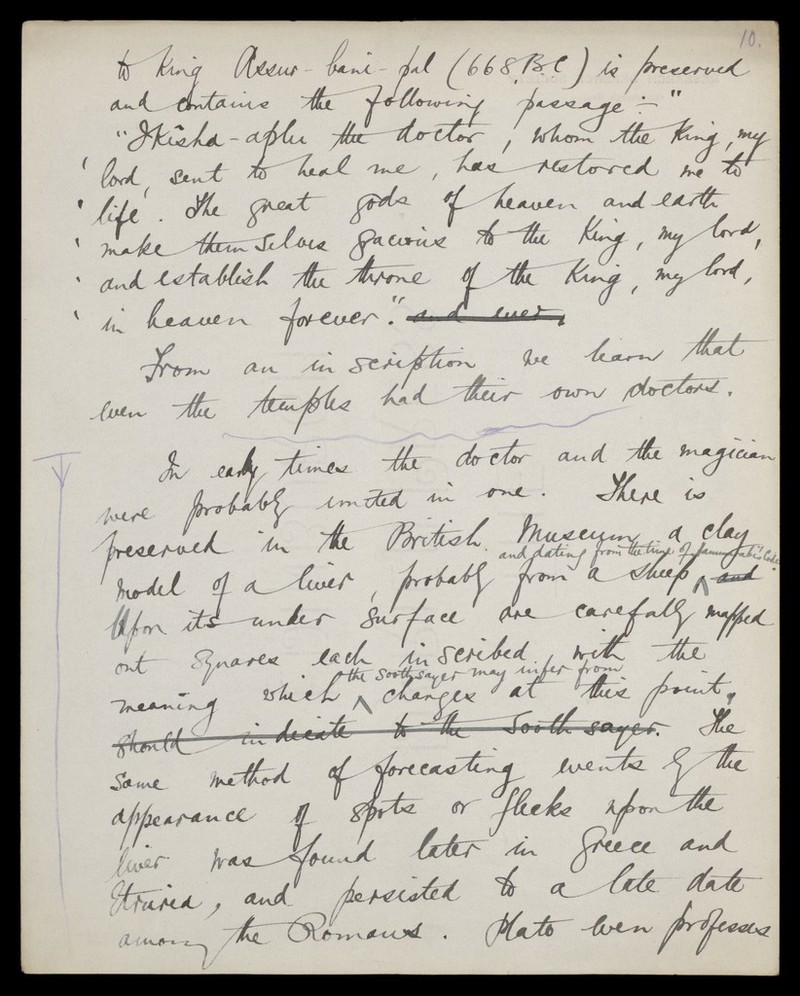 10.
to King Assur-bani-pal (668 B.C) is preserved
and contains the following passage :- "
"Ikisha-aplu the doctor, whom the King, my
' lord, sent to heal me, has restored me to
' life. The great gods of heaven and earth
' make themselves gracious to the King, my lord,
' and establish the throne of the King, my lord,
' in heaven forever." and ever.
From an inscription we learn that
even the temples had their own doctors.
In early times the doctor and the magician
were probably united in one. There is
preserved in the British Museum a clay
and dating from the time of Hammurabi's Code
model of a liver, probably from a sheep, and
Upon its under surface are carefully mapped
out squares each inscribed with the
the soothsayer may infer from
meaning which changes at this point,
should indicate to the Soothsayer. The
same method of forecasting events by the
appearance of spots or flecks upon the
liver was found later in Greece and
Etruria, and persisted to a late date
among the Romans. Plato even professes